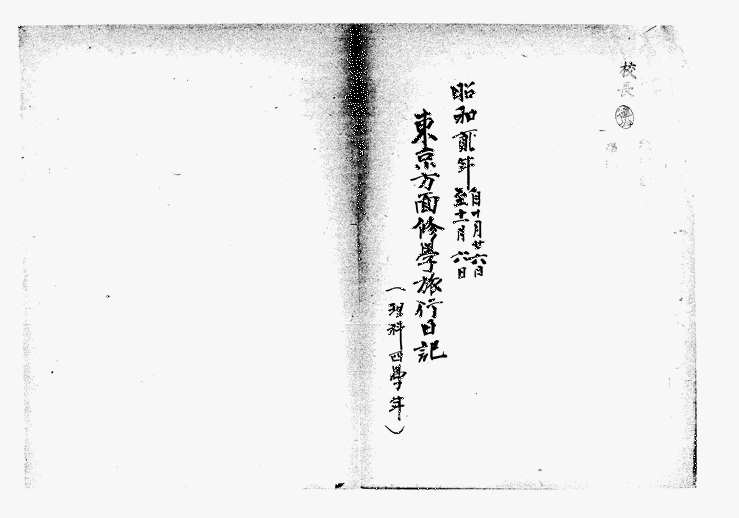 校長
昭和貳年 自十月廿六日
至十一月六日
東京方面修學旅行日記
（理科四學年）